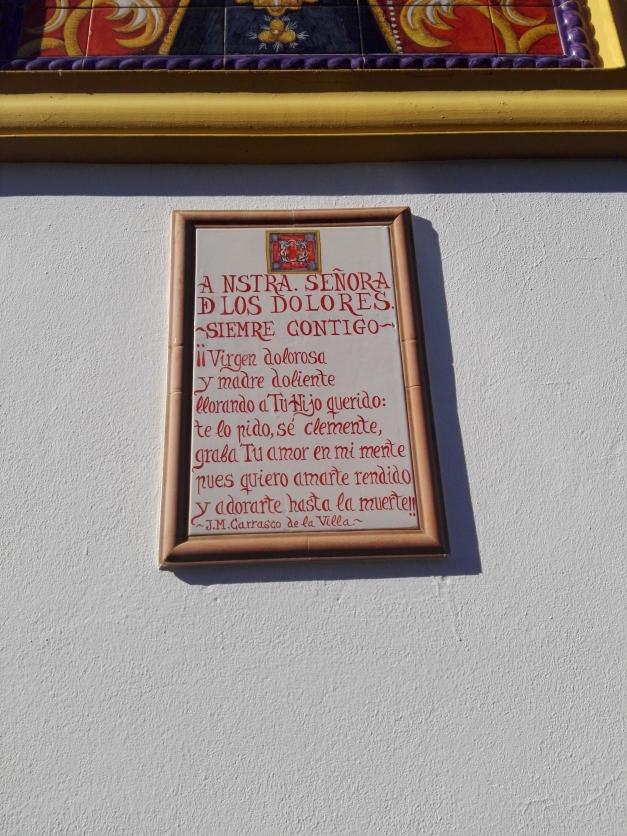 A NSTRA. SEÑORA
D LOS DOLORES.
~SIEMRE CONTIGO~
¡¡Virgen dolorosa
y madre doliente
llorando a Tu Hijo querido:
te lo pido, sé clemente,
graba Tu amor en mi mente
pues quiero amarte rendido
y adorarte hasta la muerte!!
~J.M. Carrasco de la Villa~